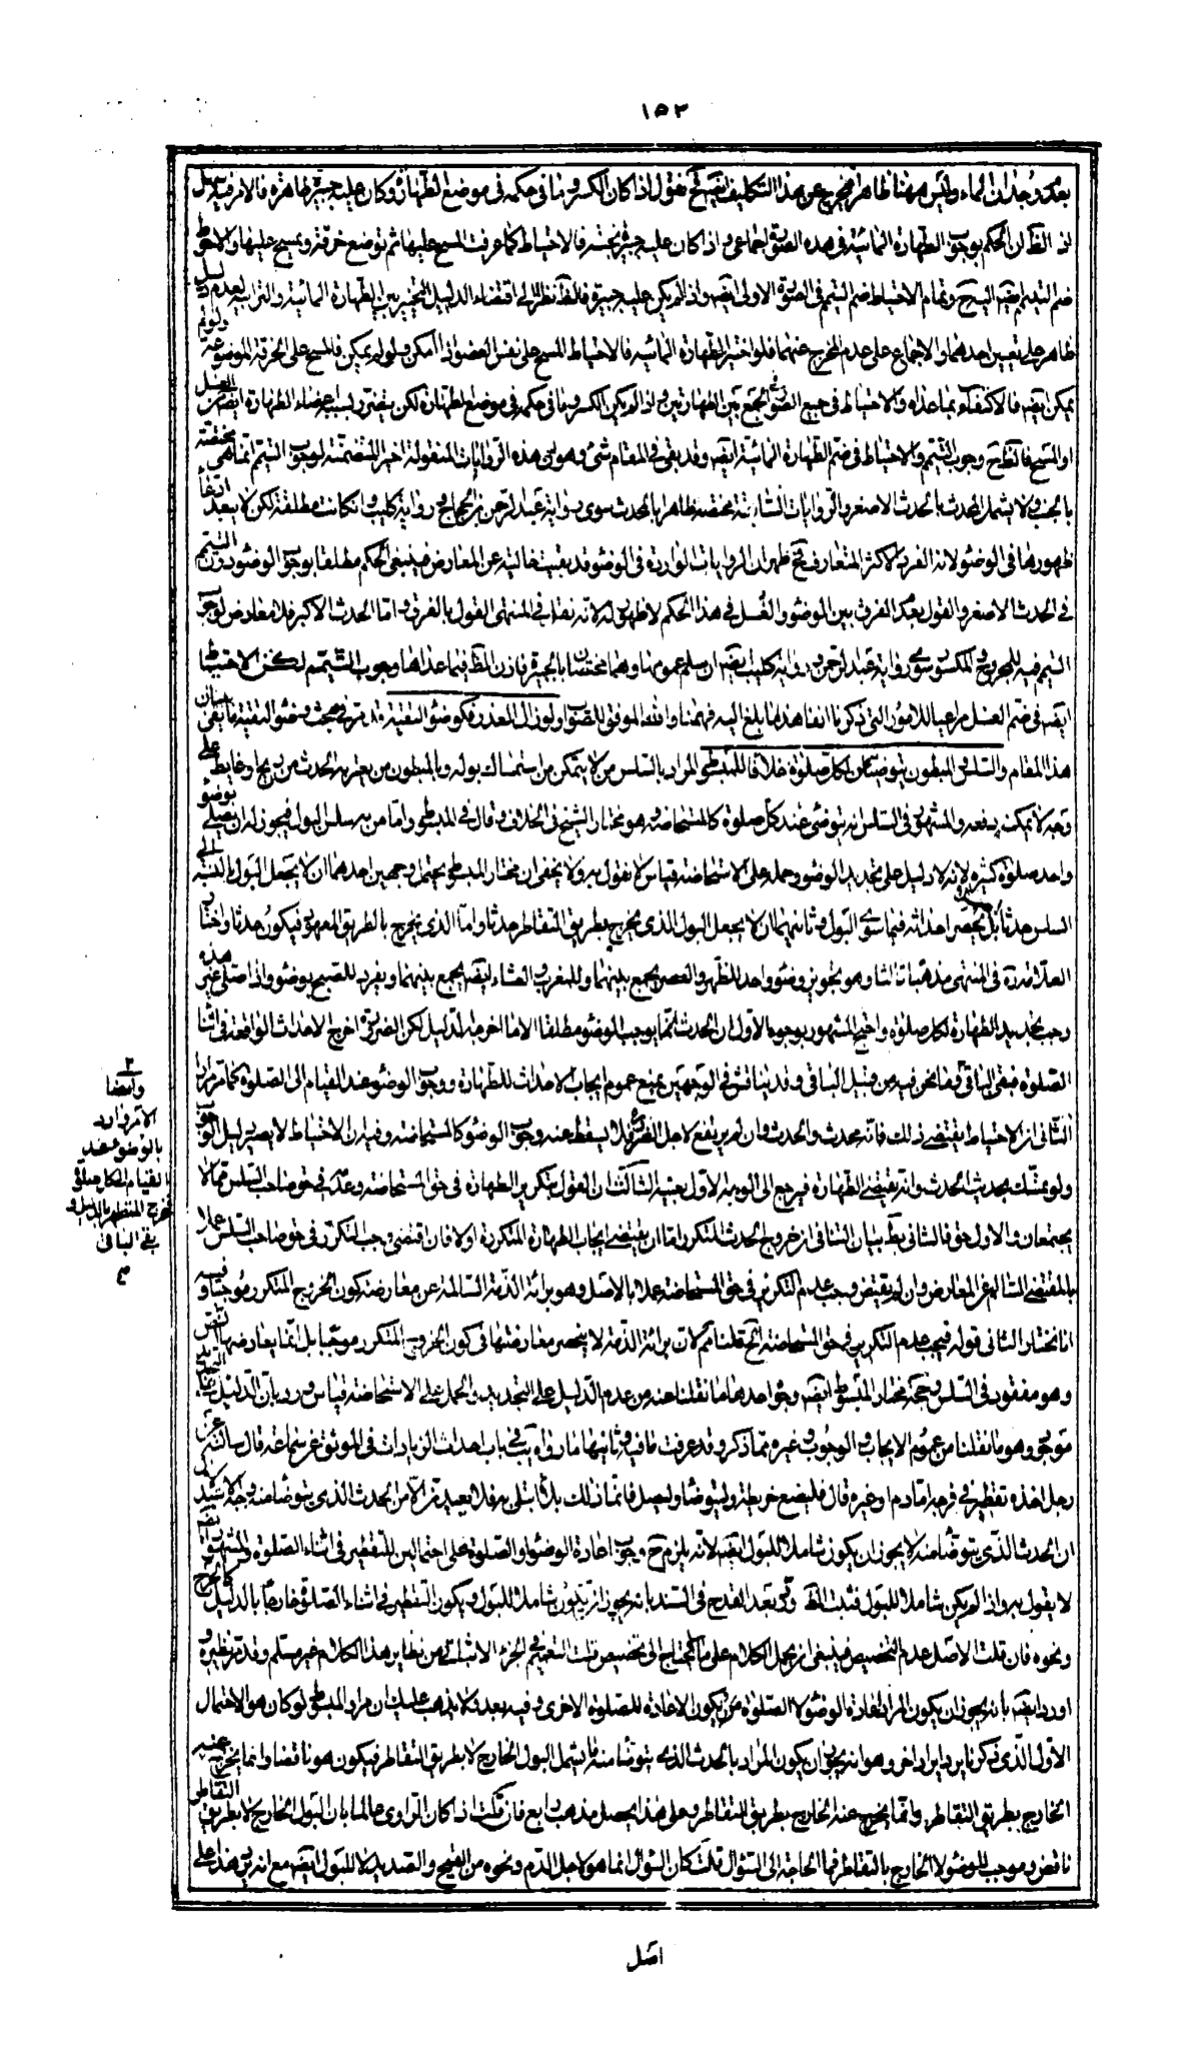 ١٥٣
بعد وجدان الماء وليس ههنا ظاهر مخرج عن هذا التكليف ايضا فح نقول اذا كان الكسر وما في حكمه في موضع الطهارة وكان عليه جبيرة طاهرة فالامر فيه سهل
اذ الظ ان الحكم بوجوب الطهارة المائية في هذه الصورة اجماعي واذا كان عليه جبيرة نجسة فالاحتياط كما عرفت المسح عليها ثم توضع خرقة ويمسح عليها والاحوط
ضم التيمم ايضا اليه وتمام الاحتياط ضم التيمم في الصورة الاولى ايضا واذا لم يكن عليه جبيرة فالظ نظرا الى اقتضاء الدليل التخيير بين الطهارة المائية والترابية لعدم دليل
ظاهر على تعيين احدهما والاجماع على عدم الخروج عنهما فلو اختير الطهارة المائية فالاحتياط المسح على نفس العضو اذا امكن ولو لم يمكن فالمسح على الخرقة الموضوعة ولو لم
يمكن ايضا فالاكتفاء بما عداه والاحتياط في جميع الصور الجمع بين الطهارتين واذا لم يكن الكسر وما في حكمه في موضع الطهارة لكن يتضرر بسببه اعضاء الطهارة ايضا من الغسل
او المسح فالظ ح وجوب التيمم والاحتياط في ضم الطهارة المائية ايضا وقد بقي في المقام شئ وهو ان هذه الروايات المنقولة اخيرا المتضمنة لوجوب التيمم انما هي مختصة
بالجنب ولا يشمل المحدث بالحدث الاصغر والروايات السابقة مختصة ظاهرا بالمحدث سوى رواية عبد الرحمن بن الحجاج ورواية كليب وان كانت مطلقة لكن لا يبعد ادعاء
ظهورها في الوضوء لانه الفرد الاكثر المتعارف فح ظهر ان الروايات الواردة في الوضوء قد بقيت خالية عن المعارض فينبغي الحكم مطلقا بوجوب الوضوء دون التيمم
في الحدث الاصغر والقول بعدم الفرق بين الوضوء والغسل في هذا الحكم لا ظهور له لانه نقل في المنتهى القول بالفرق واما الحدث الاكبر فلا معارض لوجوب
التيمم فيه للمجروح والمكسور سوى رواية عبد الرحمن ورواية كليب ايضا ان سلم عمومها وهما مختصتان بالجبيرة فاذن الظ فيما عداها وجوب التيمم لكن الاحتياط
ايضا في ضم الغسل مراعيا للامور التي ذكرنا انفا هذا ما بلغ اليه فهمنا والله الموفق للصواب ولو زال العذر فكوضوء التقية قد مر في مبحث وضوء التقية ما يغني بيان
هذا المقام والسلس والمبطون يتوضآن لكل صلوة خلافا للمبسوط المراد بالسلس من لا يتمكن من استمساك بوله وبالمبطون من يعتريه الحدث من ريح او غايط على
وجه لا يمكنه دفعه والمشهور في السلس انه يتوضئ عند كل صلوة كالمستحاضة وهو مختار الشيخ في الخلاف وقال في المبسوط واما من به سلس البول فيجوز له ان يصلي بوضوء
واحد صلوة كثيرة لانه لا دليل على تجديد الوضوء وحمله على الاستحاضة قياس لا نقول به ولا يخفى ان مختار المبسوط يحتمل وجهين احدهما ان لا يجعل البول بالنسبة الى
السلس حدثا بل يحصر احداثه فيما سوى البول وثانيهما ان لا يجعل البول الذي يخرج بطريق التقاطر حدثا واما الذي يخرج بالطريق المعهود فيكون حدثا واختار
العلامة ره في المنتهى مذهبا ثالثا وهو تجويز وضوء واحد للظهر والعصر يجمع بينهما وللمغرب والعشاء ايضا يجمع بينهما ويفرد للصبح بوضوء واذا صلى غير هذه
وجب تجديد الطهارة لكل صلوة واحتج المشهور بوجوه الاول ان الحدث انما يوجب الوضوء مطلقا الا ما اخرجه الدليل لكن الضرورة اخرج الاحداث الواقعة في اثناء
الصلوة فبقي الباقي وفيما نحن فيه من قبيل الباقي وقد يناقش في الوجهين بمنع عموم ايجاب الاحداث للطهارة ووجوب الوضوء عند القيام الى الصلوة كما مر مرارا
الثاني ان الاحتياط يقتضي ذلك فانه محدث والحدث وان لم يرتفع لاجل الضرورة فلا يسقط عنه وجوب الوضوء كالمستحاضة وفيه ان الاحتياط لا يصير دليل الوجوب
ولو تمسك بحديث الحدث وانه يقتضي الطهارة فيرجع الى الوجه الاول بعينه الثالث ان القول بتكرير الطهارة في حق المستحاضة وعدمه في حق صاحب السلس مما لا
يجتمعان والاول حق فالثاني بط بيان التنافي ان خروج الحدث المتكرر اما ان يقتضي ايجاب الطهارة المتكررة او لا فان اقتضى وجب التكرر في حق صاحب السلس عملا
بالمقتضي السالم عن المعارض وان لم يقتض وجب عدم التكرير في حق المستحاضة عملا بالاصل وهو براءة الذمة السالمة عن معارضة كون الخروج المتكرر موجبا وفيه
انا نختار الثاني قوله فيجب عدم التكرير في حق المستحاضة الخ قلنا مم لان براءة الذمة لا ينحصر معارضتها في كون الخروج المتكرر موجبا بل انما يعارضها النص
وهو مفقود في السلس وحجة مختار المبسوط ايضا وجوه احدها ما نقلنا عنه من عدم الدليل على التجديد والحمل على الاستحاضة قياس ورد بان الدليل
موجود وهو ما نقلنا من عموم الايجاب والوجوب وغيره مما ذكر وقد عرفت ما فيه وثانيها ما رواه يب في باب احداث الزيادات في الموثق عن سماعة قال سالته عن
رجل اخذه تقطير في فرجه اما دم او غيره قال فليضع خريطة وليتوضا وليصل فانما ذلك بلاء ابتلى به فلا يعيدن الا من الحدث الذي يتوضا منه وجه الاستدلال
ان الحدث الذي يتوضا منه لا يجوز ان يكون شاملا للبول ايضا لانه يلزم ح وجوب اعادة الوضوء او الصلوة على احتمالين للتقطير في اثناء الصلوة والمشهور ايضا
لا يقول به واذا لم يكن شاملا للبول فثبت الظ وفيه بعد القدح في السند بانه يجوز ان يكون شاملا للبول ويكون التقطير في اثناء الصلوة خارجا بالدليل كالحرج
ونحوه فان قلت الاصل عدم التخصيص فينبغي ان يحمل الكلام على ما لا يحتاج الى تخصيص قلت التعميم الجزم الاثبات من نظاير هذا الكلام غير مسلم وقد مر نظيره و
اورد ايضا بانه يجوز ان يكون المراد اعادة الوضوء لا الصلوة من يكون الاعادة للصلوة الاخرى وفيه بعد ولا يذهب عليك ان مراد المبسوط لو كان هو الاحتمال
الاول الذي ذكرنا يرد ايراد اخر وهو انه يجوز ان يكون المراد بالحدث الذي يتوضا منه ما يشمل البول الخارج لا بطريق التقاطر فيكون هو ناقضا وانما يخرج عنه
الخارج بطريق التقاطر وانما يخرج عنه الخارج بطريق التقاطر وعلى هذا يحصل مذهب رابع فان قلت اذا كان الراوي عالما بان البول الخارج لا بطريق التقاطر
ناقض وموجب للوضوء لا الخارج بالتقاطر فما الحاجة الى السؤال قلت كان السؤال انما هو لاجل الدم ونحوه من القيح والصديد لا للبول ايضا مع انه يرد هذا على
٢
وايضا
الامر وارد
بالوضوء عند
القيام لكل صلوة
خرج المتطهر بالدليل و
بقي الباقي
م
اصل